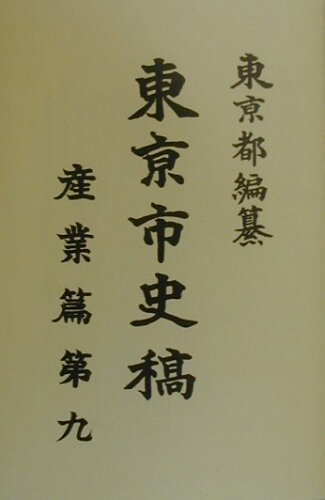 東亰都編纂
東亰市史稿
産業篇第九